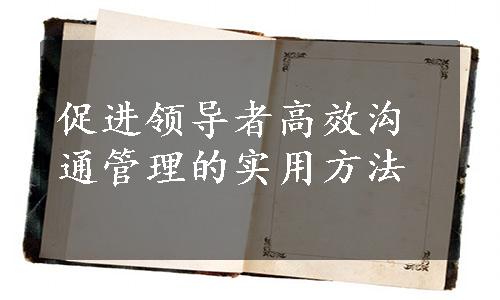 促进领导者高效沟
通管理的实用方法